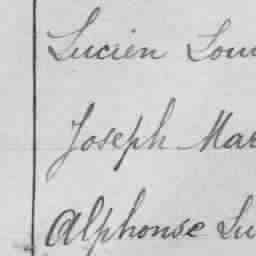 Lucien Lou
Joseph Mar
Alphonse Lu